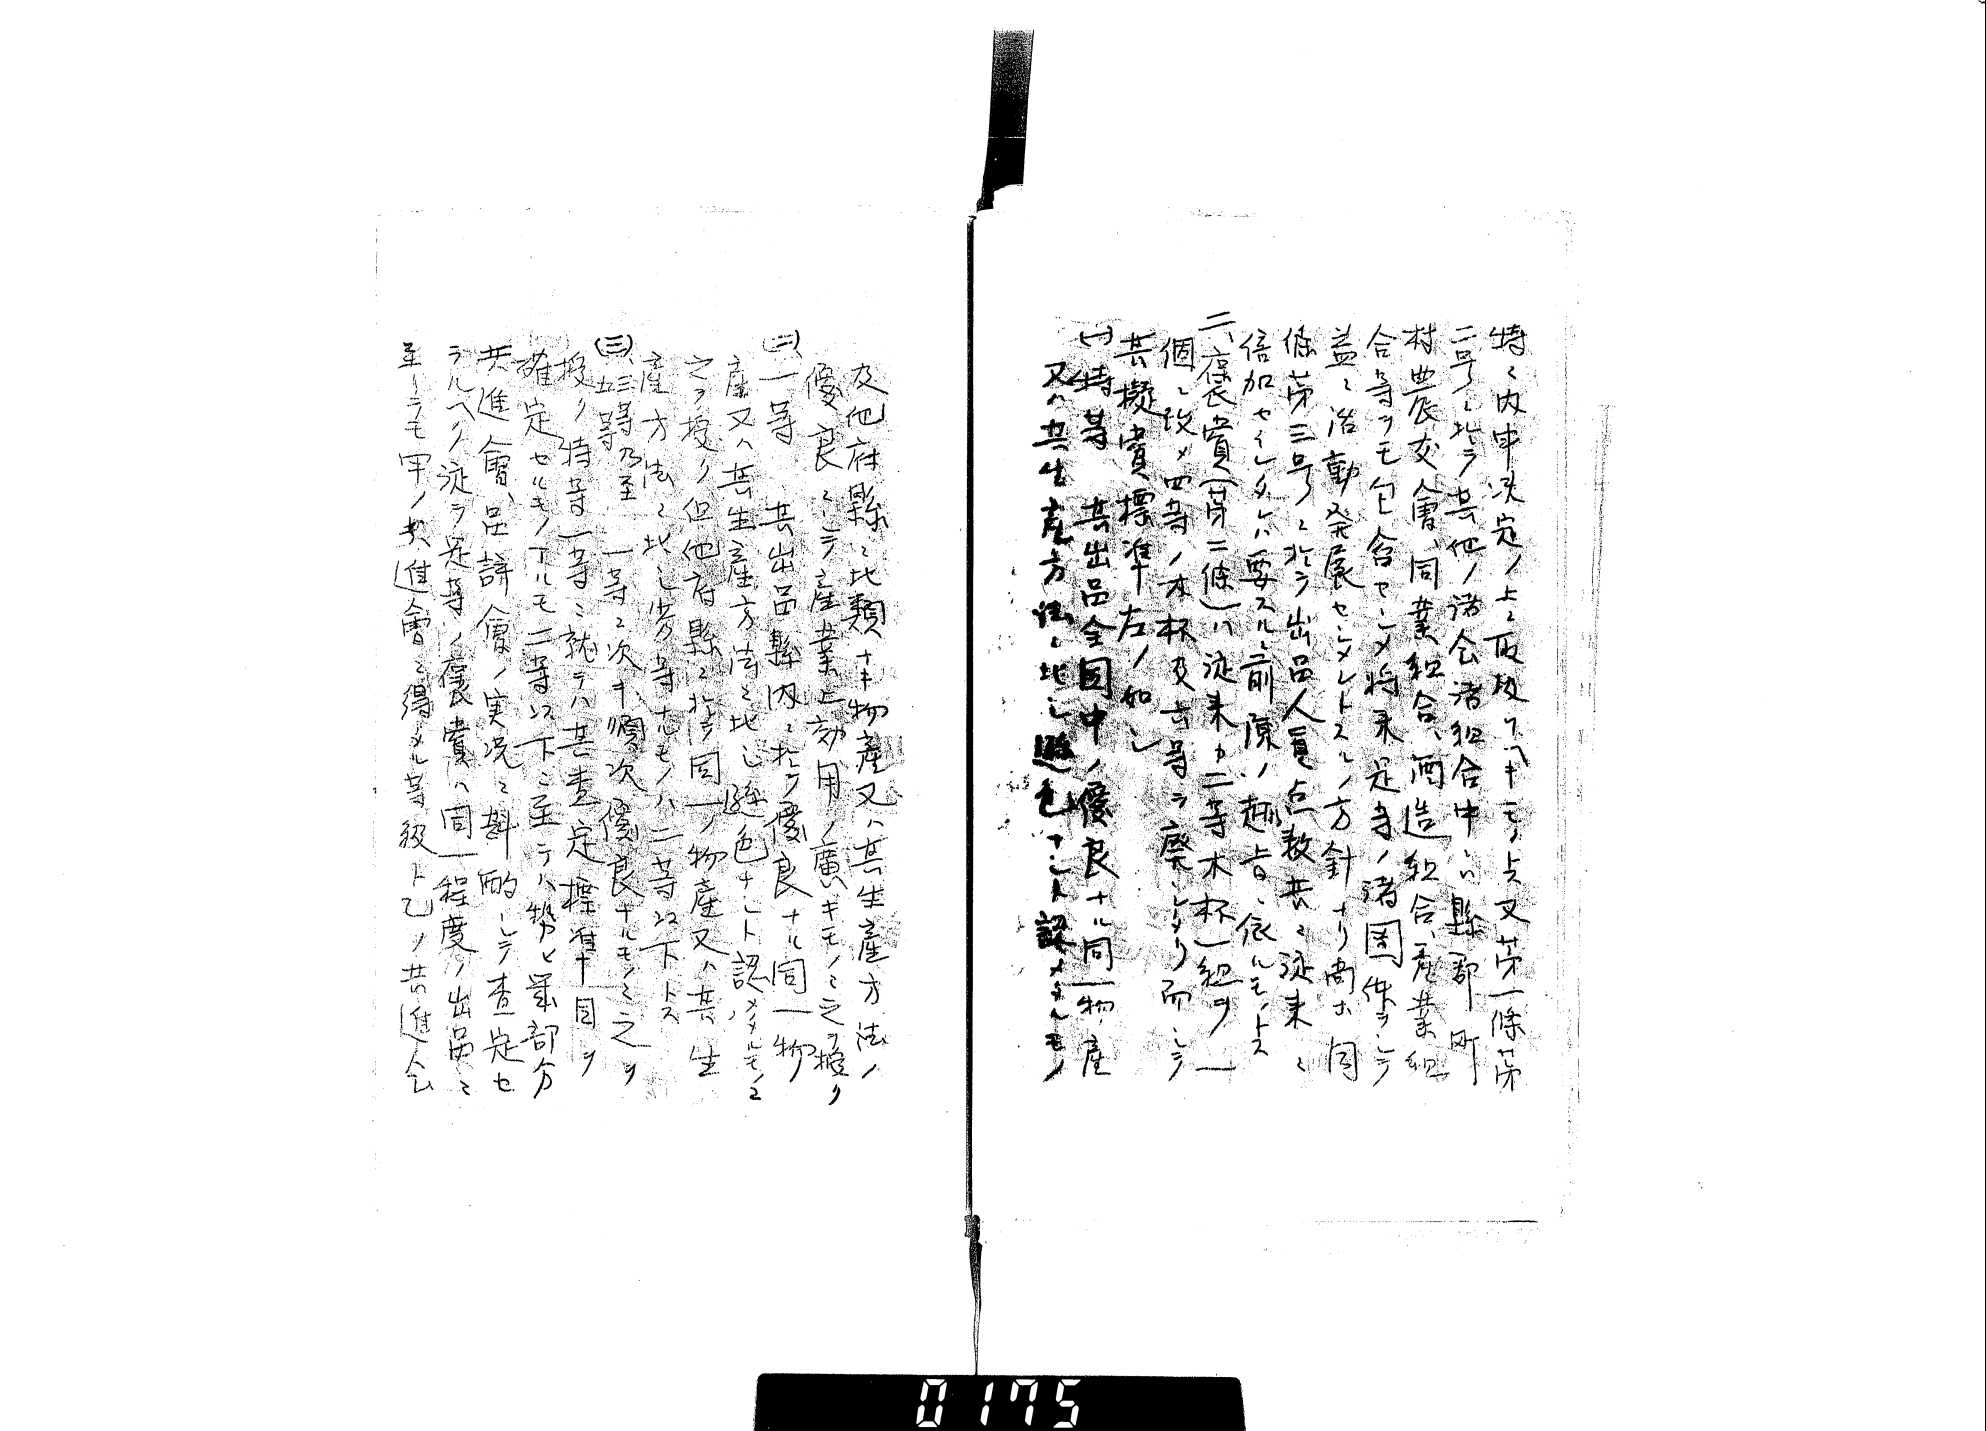 特ニ内申決定ノ上ニ取扱フヘキモノトス又第一條第
二号ニ於テ其他ノ諸会諸組合中ニハ縣郡町
村農友會、同業組合、酒造組合、産業組
合等ヲモ包含セシメ将来是等ノ諸團体ヲシテ
益ニ活動発展セシメントスルノ方針ナリ尚ホ同
條第三号ニ於テ出品人員点数共ニ従来ニ
倍加セイシメタレハ要スルニ前陳ノ趣旨ニ依ルモノトス
二、褒賞(第二條)ハ従来ノ二等木杯一組ヲ一
個ニ改メ四等ノ木杯及六等ヲ廃シタリ而シテ
其擬賞標準左ノ如シ
(一)特等 其出品全國中ノ優良ナル同一物産
又ハ其生産方法ニ比シ遜色ナシト認メタルモノ
及他府縣ニ比類ナキ物産又ハ其生産方法ノ
優良ニシテ産業上効用ノ廣キモノニ之ヲ授ク
(二)一等 其出品縣内ニ於テ優良ナル同一物
産又ハ其生産方法ニ比シ遜色ナシト認メタルモノニ
之ヲ授ク但他府縣ニ於テ同一ノ物産又ハ其生
産方法ニ比シ劣等ナルモノハ二等以下トス
(三)三等乃至五等 一等ニ次キ順次優良ナルモノニ之ヲ
授ク特等一等ニ就テハ其査定標準十目ヲ
確定セルモノアルモ二等以下ニ至テハ勢ヒ幾部分
共進會、品評會ノ実况ニ斟酌シテ査定セ
ラルヘク従テ是等ノ褒賞ハ同一程度ノ出品ニ
至リテモ甲ノ共進會ニ得タル等級ト乙ノ共進会
0175